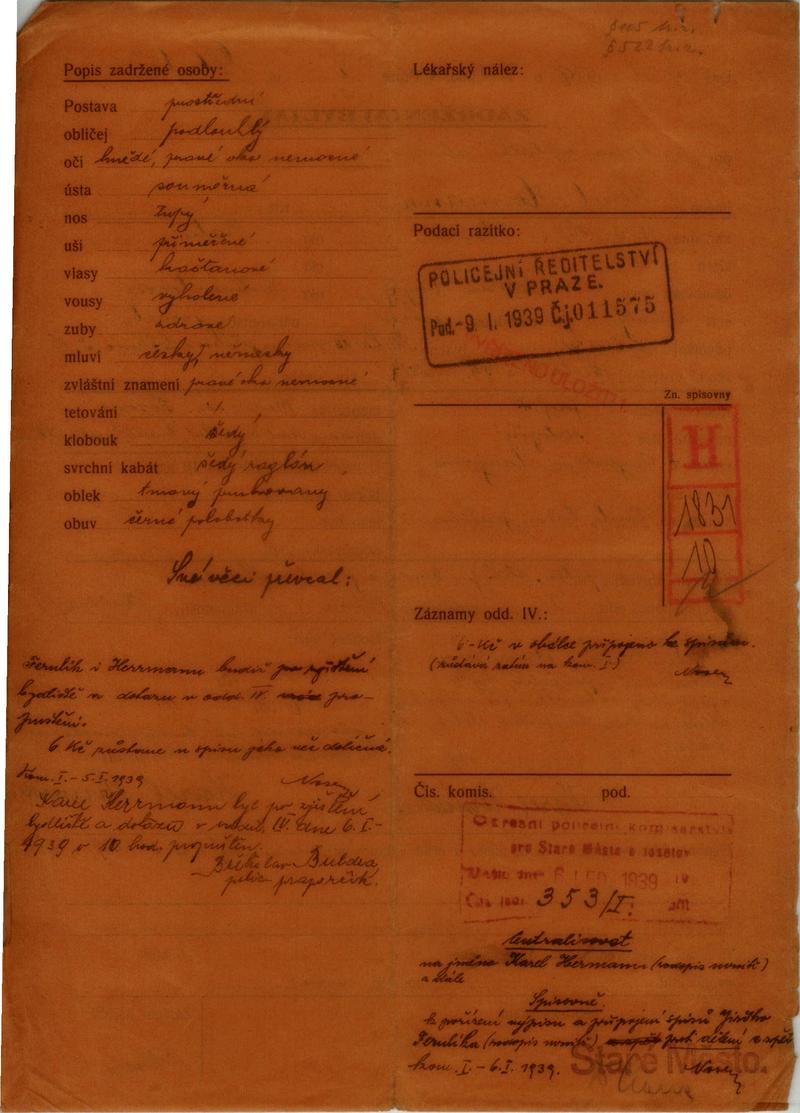 § 1115 tr. z.
§ 522 tr. z.
Popis zadržené osoby:
Postava prostřední
obličej podlouhlý
oči hnědé, pravé oko nemocné
ústa souměrná
nos tupý
uši přiměřené
vlasy kaštanové
vousy vyholené
zuby zdravé
mluví česky, německy
zvláštní znamení pravé oko nemocné
tetování
klobouk šedý
svrchní kabát šedý raglán
oblek tmavý
obuv černé polobotky
Své věci převzal:
i Herrmann budiž zjištění
bydliště a dotazu v odd. IV. pro-
puštěni.
6 Kč zůstane u spisu jako věc doličná.
Kom. I. - 5. I. 1939
Karel Herrmann byl po zjištění
bydliště a dotazu v odděl. IV. dne 6. I.
1939 o 10 hod. propuštěn.
Břetislav
polic. praporčík.
Lékařský nález:
Podací razítko:
POLICEJNÍ ŘEDITELSTVÍ
V PRAZE.
Pod. - 9. I. 1939 Č.j. 011575
Zn. spisovny
H
1831
10
Záznamy odd. IV.:
6 Kč v obálce připojeno ke spisům.
(zůstává zatím na kom. I.)
Čís. komis. pod.
Okresní policejní komisařství
pro Staré Město a Josefov
došlo dne 6. LED. 1939
Čís. 353/I.
Centralisovat
na jméno Karel Hermann (rodopis nosiči)
a dále
Spisovně
k pořízení výpisu a připojení spisů
kom. I. - 6. I. 1939.
Staré Město.